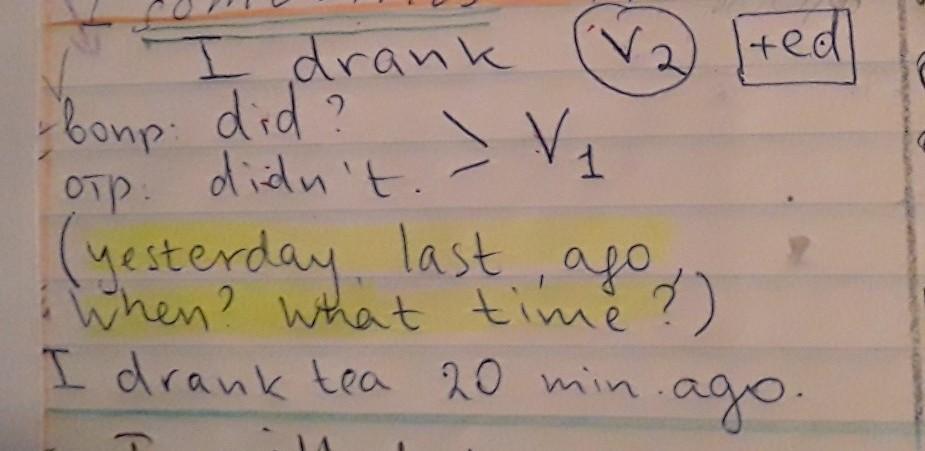 I drank V2 +ed
вопр: did?
отр: didn't. > V1
(yesterday, last, ago,
when? what time?)
I drank tea 20 min. ago.